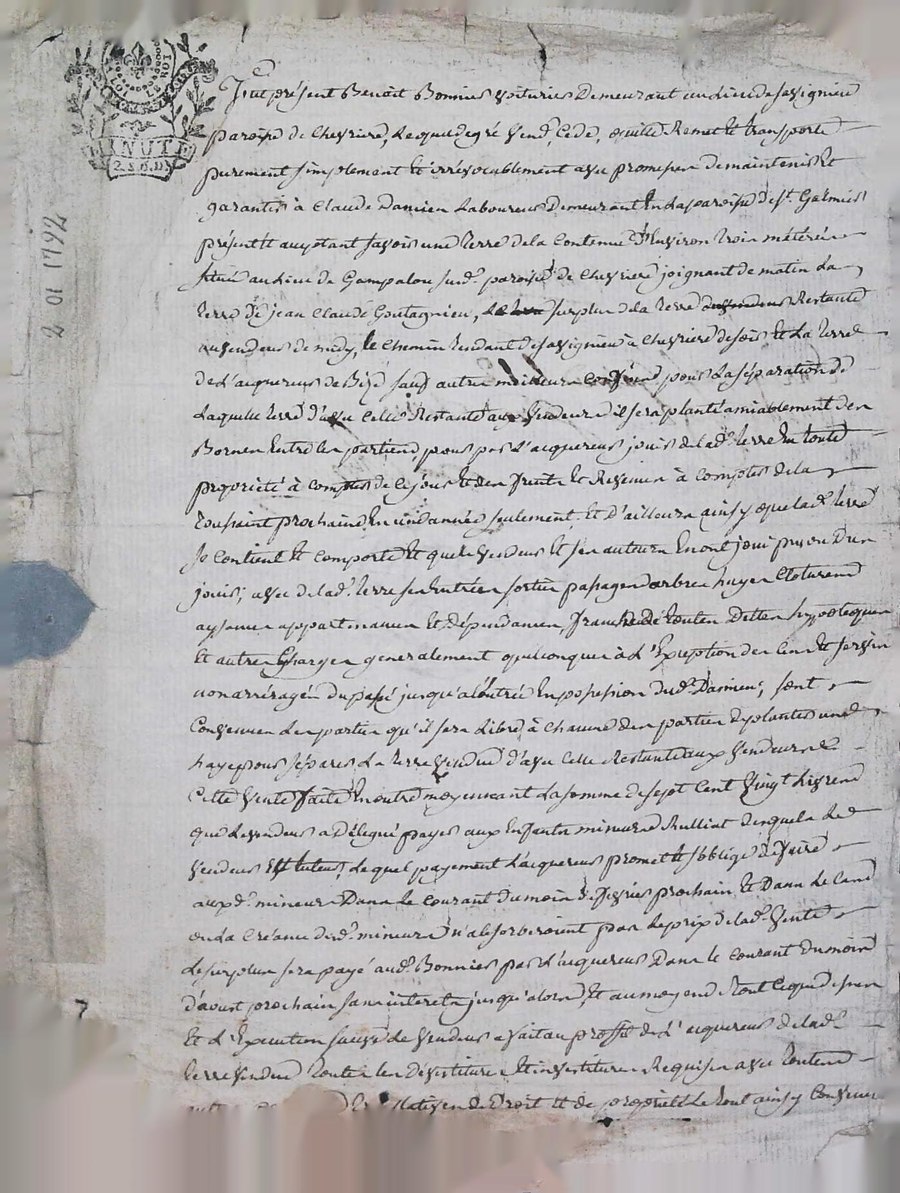 LA LOI LE ROI
MINUTE
2 S. 6 D.
2 01 1792
Fut présent Benoit Bonnier voiturier Demeurant au lieu de
paroisse de Chevriere, Lequel de gré vend, Cede, quitte Remet et transporte
purement simplement et irrévocablement avec promesse de maintenir et
garantir à Claude Damien Laboureur Demeurant En la paroisse de St. Galmier
présent et acceptant savoir une Terre de la Contenue d'Environ trois métérées
située au lieu de Gampalou susd.e paroisse de Chevriere joignant de matin La
Terre de jean Claude Goutagnieu, Le surplus de la Terre Restante
au vendeur de midy, le Chemin Tendant de à Chevriere de soir Et La Terre
de L'acquereur de Bize sauf autres meilleurs Confins, pour La séparation de
Laquelle Terre d'avec Celle Restante aux Vendeur il sera planté amiablement des
Bornes Entre les parties, pour par L'acquereur jouir de lad.e Terre En toute
propriété à Compter de Ce jour Et des fruits Et Revenus à Compter de la
Toussaint prochaine En un année seulement, Et d'ailleurs ainsy que lad.e Terre
Se Contient Et Comporte Et que le Vendeur Et ses auteurs En ont joui pu ou Du
jouir, avec de lad.e Terre ses Entrées sorties passages arbres hayes Clotures
aysances appartenances Et Dépendances, franche de Toutes Dettes hypotheques
Et autres Charges generalement quelconques à L'Exception des Cens Et servis
non arréragés du passé jusqu'a L'entrée En possession dud. Damien; sont
Convenues Les parties qu'il sera Libre à Chacune des parties de planter une
haye pour séparer La Terre vendue d'avec Celle Restante aux vendeur
Cette Vente faite En outre moyennant La somme de sept Cent Vingt Livres
que Le vendeur a Délégué payer aux Enfants mineurs Rullint desquels Le
Vendeur Est tuteur, Lequel payement L'acquereur promet Et s'oblige de faire
auxd. mineurs Dans le Courant du mois de Février prochain Et Dans Le Cas
ou La Créance desd. mineurs n'absorberoient pas Le prix de lad.e Vente
Le surplus sera payé aud. Bonnier par L'acquereur Dans le Courant du mois
d'aoust prochain sans interets jusqu'alors, Et au moyen de Tout Ce que dessus
Et d'Execution Le Vendeur a fait au proffit de L'acquereur de lad.e
Terre vendue Toutes Les Devestitures Et investitures Requises avec Toutes
de Droit Et de propriété Le Tout ainsy Convenu